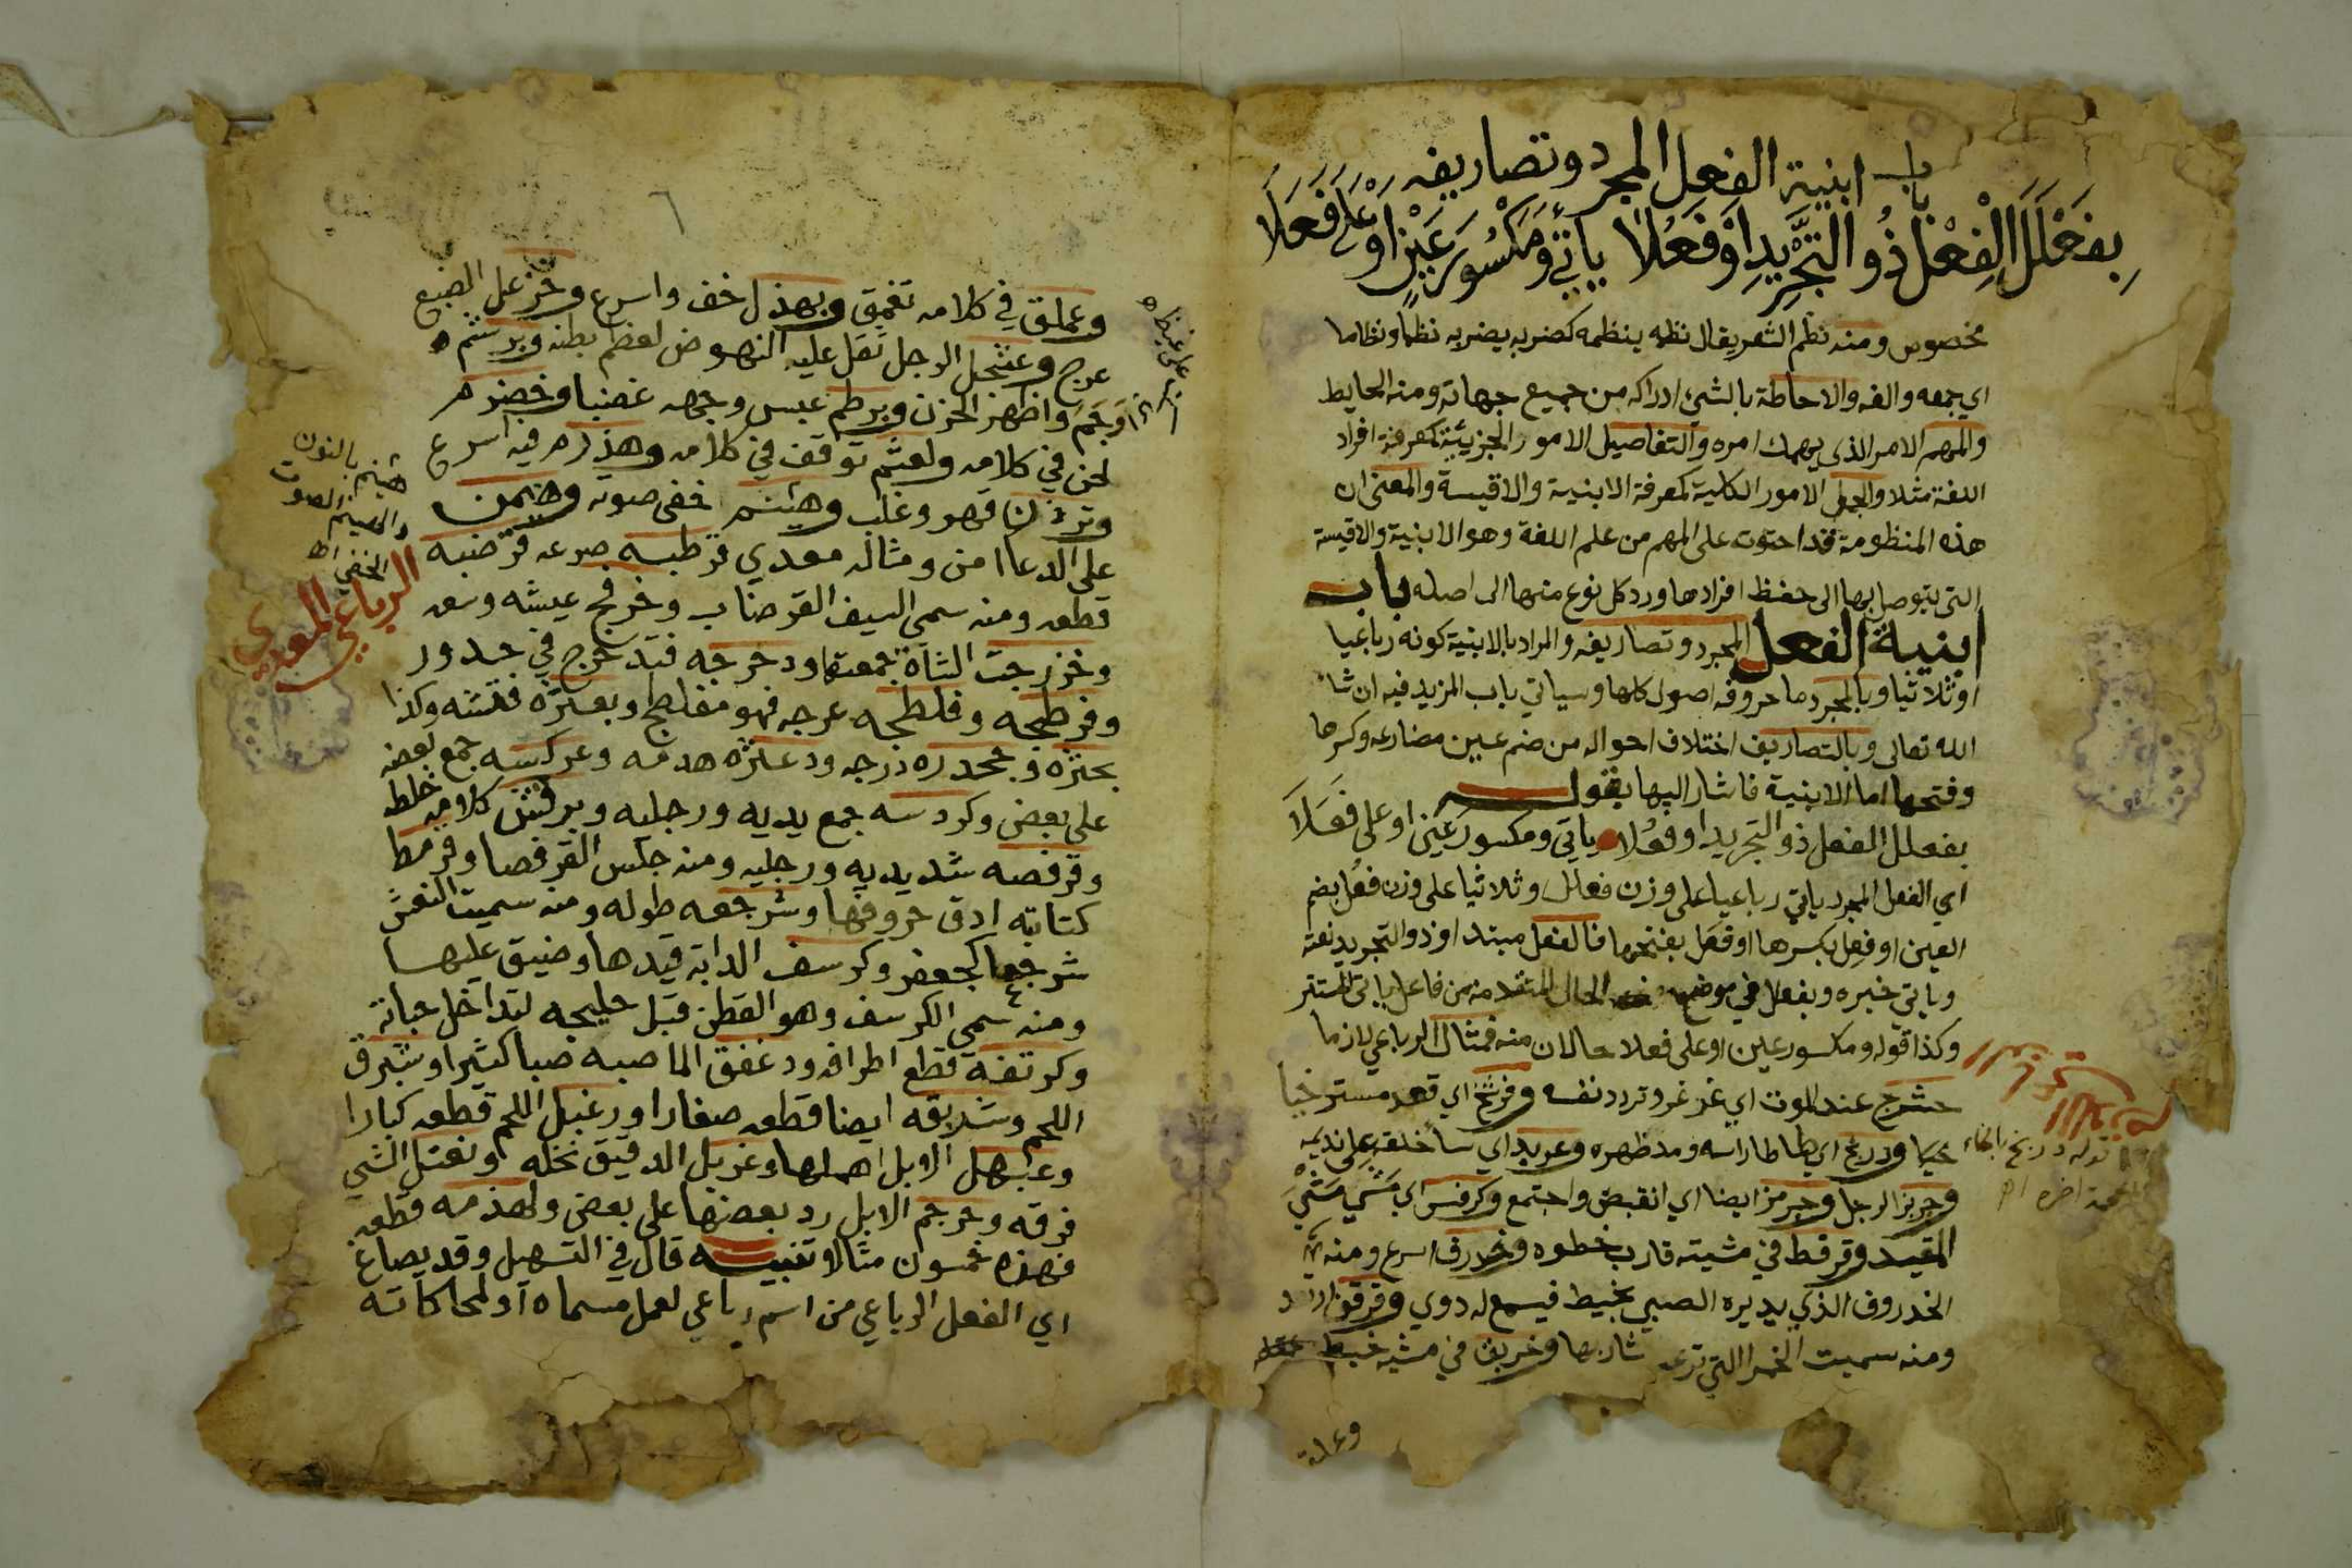 باب ابنية الفعل المجرد وتصاريفه
بِفَعْلَلَ الْفِعْلُ ذُو التَّجْرِيدِ اَوْ فَعُلَا يَاتِي وَمَكْسُورَ عَيْنٍ اَوْ عَلَى فَعَلَا
مخصوص ومنه نظم الشعر يقال نظمه ينظمه كضربه يضربه نظما ونظاما
اي جمعه والفه والاحاطة بالشيء ادراكه من جميع جهاته ومنه الحايط
والمهم الامر الذي يهمك امره والتفاصيل الامور الجزيئية كمعرفة افراد
اللغة مثلا والجمل الامور الكلية كمعرفة الابنية والاقيسة والمعنى ان
هذه المنظومة قد احتوت على المهم من علم اللغة وهو الابنية والاقيسة
التي يتوصل بها الى حفظ افرادها ورد كل نوع منها الى اصله باب
ابنية الفعل المجرد وتصاريفه والمراد بالابنية كونه رباعيا
او ثلاثيا وبالمجرد ما حروفه اصول كلها وسياتي باب المزيد فيه ان شا
الله تعالى وبالتصاريف اختلاف احواله من ضم عين مضارعه وكسرها
وفتحها اما الابنية فاشار اليها بقوله
بفعلل الفعل ذو التجريد او فعُلا ياتي ومكسور عين او على فعَلَا
اي الفعل المجرد ياتي رباعيا على وزن فعلل وثلاثيا على وزن فعُل بضم
العين او فعِل بكسرها او فعَل بفتحها فالفعل مبتدا وذو التجريد نعته
وياتي خبره وبفعلل في موضع الحال المتقدمة من فاعل ياتي المستتر
وكذا قوله ومكسور عين او على فعلا حالان منه فمثال الرباعي لازما
حشرج عند الموت اي غرغر وتردد نفسه وفرشخ اي قعد مسترخيا
ودربخ اي طاطا راسه ومد ظهره وعربد اي سا خلقه على نديمه
وجربز الرجل وجرمز ايضا اي انقبض واجتمع وكرفس اي مَشَى مَشْيَ
المقيد وقرفط في مشيته قارب خطوه وخذرف اسرع ومنه
الخدروف الذي يديره الصبي بخيط فيسمع له دوي وقرقف
ومنه سميت الخمر التي ترعد شاربها وخربق في مشيه خبط
قوله دربخ بالخاء
المعجمة اخره اه
وعملق
٦
وعملق في كلامه تعمق وبهذل خف واسرع وخزعل الضبع
عرج وعثجل الرجل ثقل عليه النهوض لعظم بطنه وبرشم
وَجَمَ واظهر الحزن وبرطم عبس وجهه غضبا وخضرم
لحن في كلامه ولعثم توقف في كلامه وهذرم فيه اسرع
قهر وغلب وهينم خفى صوته وهيمن
على الدعا امن ومثاله معدي قرطبه صرعه قرضبه
قطعه ومنه سمي السيف القرضاب وخرفج عيشه وسعه
وخزرجت الشاة جمعتها ودحرجه فتدحرج في حدور
وفرطحه وفلطحه عرجه فهو مفلطح وبعثره فتشه وكذا
بحثره وجحدره درجه ودعثره هدمه وعركسه جمع بعضه
على بعض وكردسه جمع يديه ورجليه وبرقش كلامه خلط
وقرفصه شد يديه ورجليه ومنه جلس القرفصا وقرمط
كتابته ادق حروفها وشرجعه طوله ومنه سميت النعش
شرجعا كجعفر وكرسف الدابة قيدها وضيق عليها
ومنه سمي الكرسف وهو القطن قبل حليجه لتداخل حباته
وكرتفه قطع اطرافه ودغفق الما صبه صبا كثيرا وشبرق
اللحم وشربقه ايضا قطعه صغارا ورغبل اللحم قطعه كبارا
وعبهل الابل اهملها وغربل الدقيق نخله ونعثل الشي
فرقه وحرجم الابل رد بعضها على بعض ولهذمه قطعه
فهذه خمسون مثالا تنبيه قال في التسهيل وقد يصاغ
اي الفعل الرباعي من اسم رباعي لعمل مسماه او لمحاكاته
هينم بالنون
والهينم الصوت
الخفي اه
الرباعي المعدي